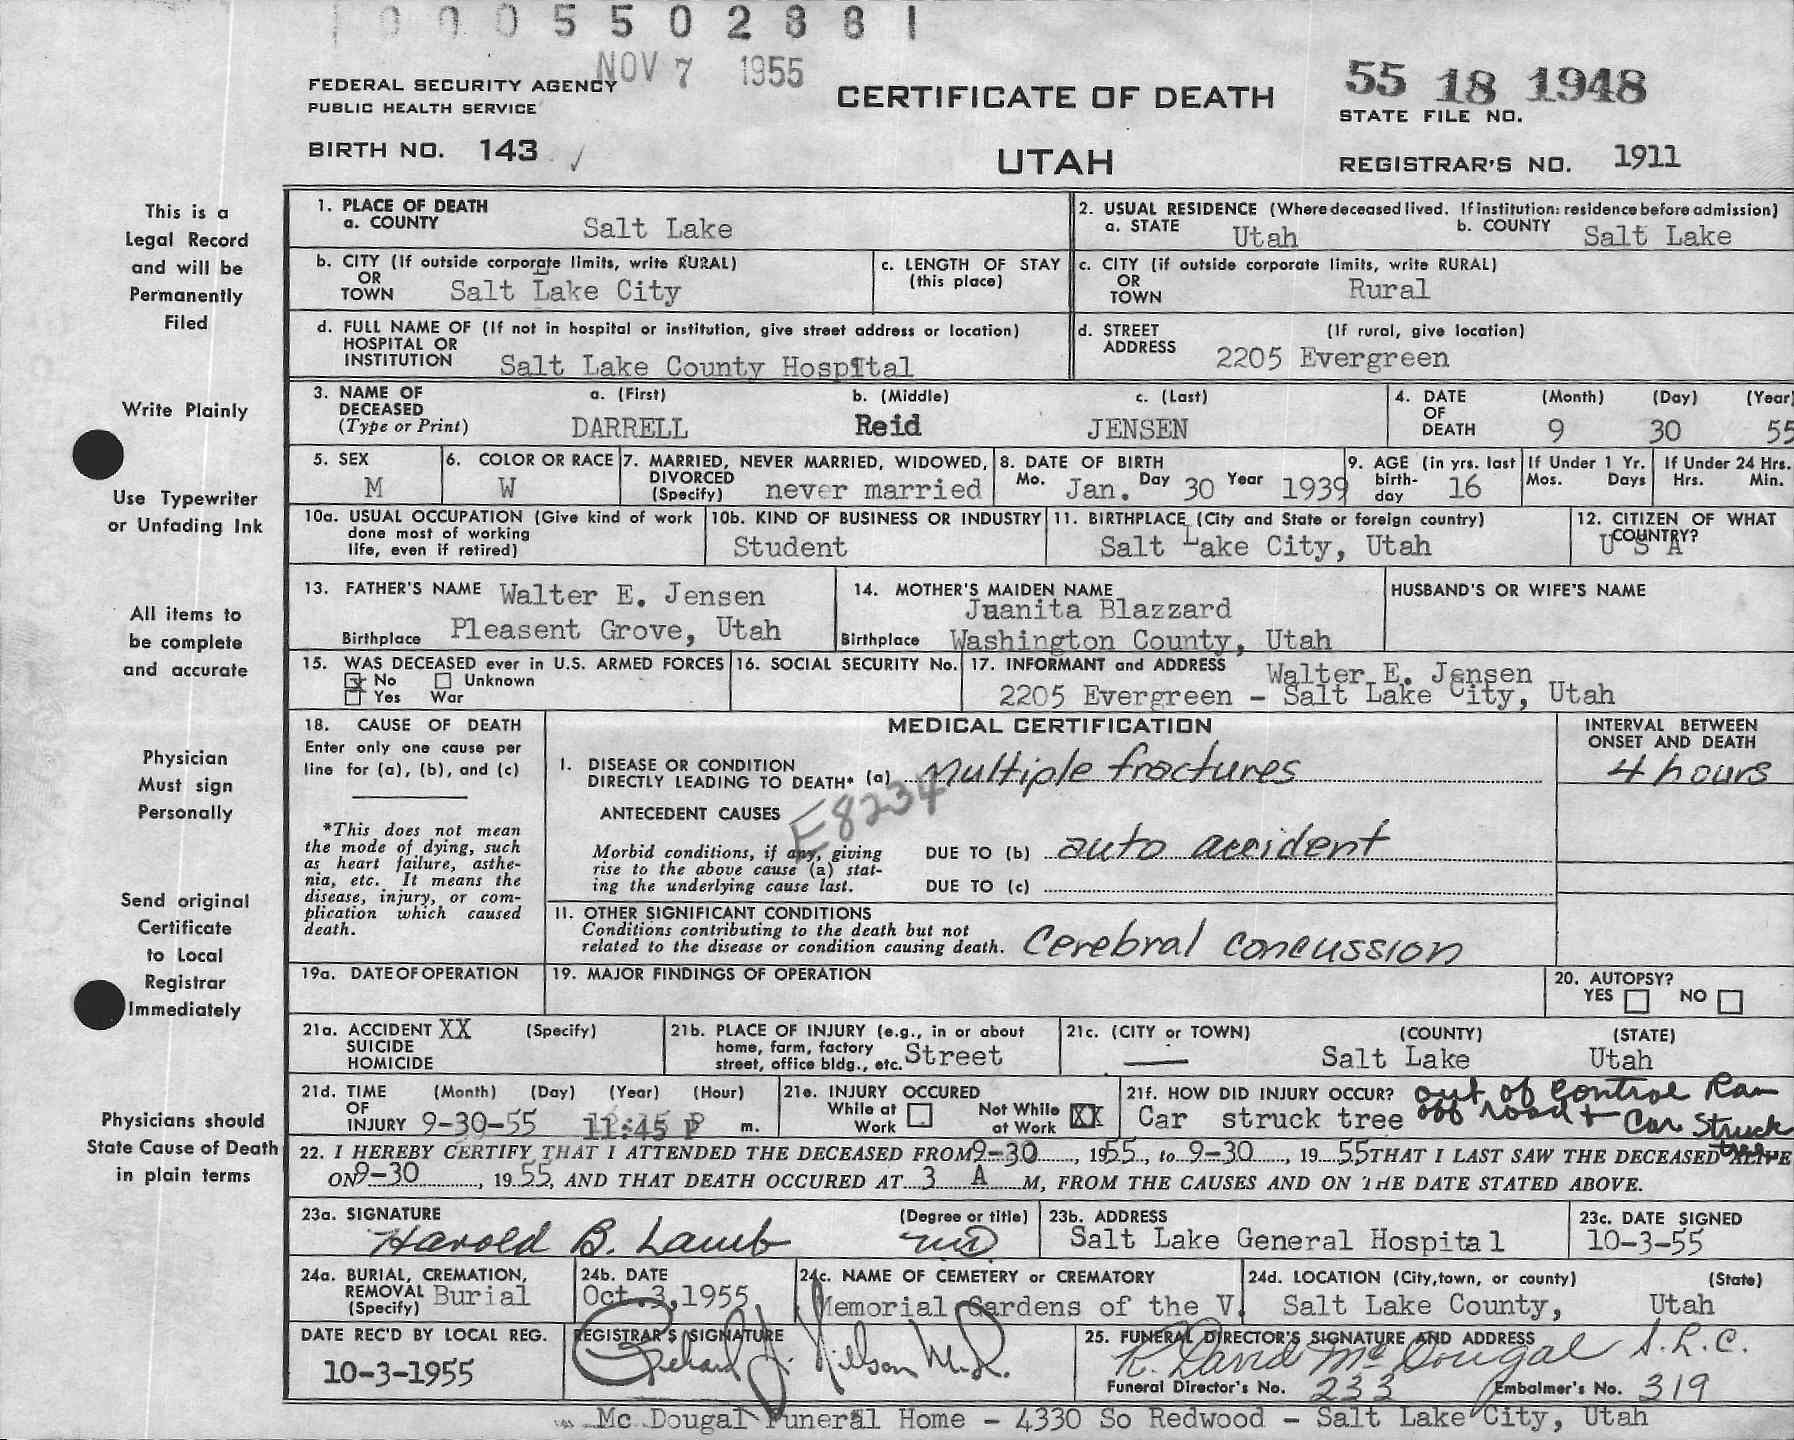 1 0 0 0 5 5 0 2 8 8 1
NOV 7 1955
FEDERAL SECURITY AGENCY
PUBLIC HEALTH SERVICE
CERTIFICATE OF DEATH
55 18 1948
STATE FILE NO.
BIRTH NO. 143
UTAH
REGISTRAR'S NO. 1911
This is a
Legal Record
and will be
Permanently
Filed
Write Plainly
Use Typewriter
or Unfading Ink
All items to
be complete
and accurate
Physician
Must sign
Personally
Send original
Certificate
to Local
Registrar
Immediately
Physicians should
State Cause of Death
in plain terms
1. PLACE OF DEATH
a. COUNTY Salt Lake
2. USUAL RESIDENCE (Where deceased lived. If institution: residence before admission)
a. STATE Utah b. COUNTY Salt Lake
b. CITY (If outside corporate limits, write RURAL)
OR
TOWN Salt Lake City
c. LENGTH OF STAY
(this place)
c. CITY (if outside corporate limits, write RURAL)
OR
TOWN Rural
d. FULL NAME OF (If not in hospital or institution, give street address or location)
HOSPITAL OR
INSTITUTION Salt Lake County Hospital
d. STREET (If rural, give location)
ADDRESS 2205 Evergreen
3. NAME OF a. (First) b. (Middle) c. (Last)
DECEASED
(Type or Print) DARRELL Reid JENSEN
4. DATE (Month) (Day) (Year)
OF
DEATH 9 30 55
5. SEX
M
6. COLOR OR RACE
W
7. MARRIED, NEVER MARRIED, WIDOWED,
DIVORCED
(Specify) never married
8. DATE OF BIRTH
Mo. Jan. Day 30 Year 1939
9. AGE (in yrs. last
birth-
day 16
If Under 1 Yr.
Mos. Days
If Under 24 Hrs.
Hrs. Min.
10a. USUAL OCCUPATION (Give kind of work
done most of working
life, even if retired)
10b. KIND OF BUSINESS OR INDUSTRY
Student
11. BIRTHPLACE (City and State or foreign country)
Salt Lake City, Utah
12. CITIZEN OF WHAT
COUNTRY?
U S A
13. FATHER'S NAME Walter E. Jensen
Birthplace Pleasent Grove, Utah
14. MOTHER'S MAIDEN NAME
Juanita Blazzard
Birthplace Washington County, Utah
HUSBAND'S OR WIFE'S NAME
15. WAS DECEASED ever in U.S. ARMED FORCES
No Unknown
Yes War
16. SOCIAL SECURITY No.
17. INFORMANT and ADDRESS Walter E. Jensen
2205 Evergreen - Salt Lake City, Utah
18. CAUSE OF DEATH
Enter only one cause per
line for (a), (b), and (c)
*This does not mean
the mode of dying, such
as heart failure, asthe-
nia, etc. It means the
disease, injury, or com-
plication which caused
death.
MEDICAL CERTIFICATION
INTERVAL BETWEEN
ONSET AND DEATH
I. DISEASE OR CONDITION
DIRECTLY LEADING TO DEATH* (a) Multiple fractures
4 hours
E8234
ANTECEDENT CAUSES
Morbid conditions, if any, giving
rise to the above cause (a) stat-
ing the underlying cause last.
DUE TO (b) auto accident
DUE TO (c)
II. OTHER SIGNIFICANT CONDITIONS
Conditions contributing to the death but not
related to the disease or condition causing death. Cerebral concussion
19a. DATE OF OPERATION
19. MAJOR FINDINGS OF OPERATION
20. AUTOPSY?
YES NO
21a. ACCIDENT XX (Specify)
SUICIDE
HOMICIDE
21b. PLACE OF INJURY (e.g., in or about
home, farm, factory
street, office bldg., etc. Street
21c. (CITY or TOWN) (COUNTY) (STATE)
— Salt Lake Utah
21d. TIME (Month) (Day) (Year) (Hour)
OF
INJURY 9-30-55 11:45 P m.
21e. INJURY OCCURED
While at Work Not While at Work XX
21f. HOW DID INJURY OCCUR? out of control Ran
Car struck tree off road + Car Struck
tree
22. I HEREBY CERTIFY THAT I ATTENDED THE DECEASED FROM 9-30, 1955, to 9-30, 1955 THAT I LAST SAW THE DECEASED ALIVE
ON 9-30, 1955, AND THAT DEATH OCCURED AT 3 A M, FROM THE CAUSES AND ON THE DATE STATED ABOVE.
23a. SIGNATURE (Degree or title)
Harold B. Lamb MD
23b. ADDRESS
Salt Lake General Hospital
23c. DATE SIGNED
10-3-55
24a. BURIAL, CREMATION,
REMOVAL
(Specify) Burial
24b. DATE
Oct. 3, 1955
24c. NAME OF CEMETERY or CREMATORY
Memorial Gardens of the V.
24d. LOCATION (City, town, or county) (State)
Salt Lake County, Utah
DATE REC'D BY LOCAL REG.
10-3-1955
REGISTRAR'S SIGNATURE
Richard J. Nielson M.D.
25. FUNERAL DIRECTOR'S SIGNATURE AND ADDRESS
R. David McDougal S.L.C.
Funeral Director's No. 233 Embalmer's No. 319
Mc Dougal Funeral Home - 4330 So Redwood - Salt Lake City, Utah